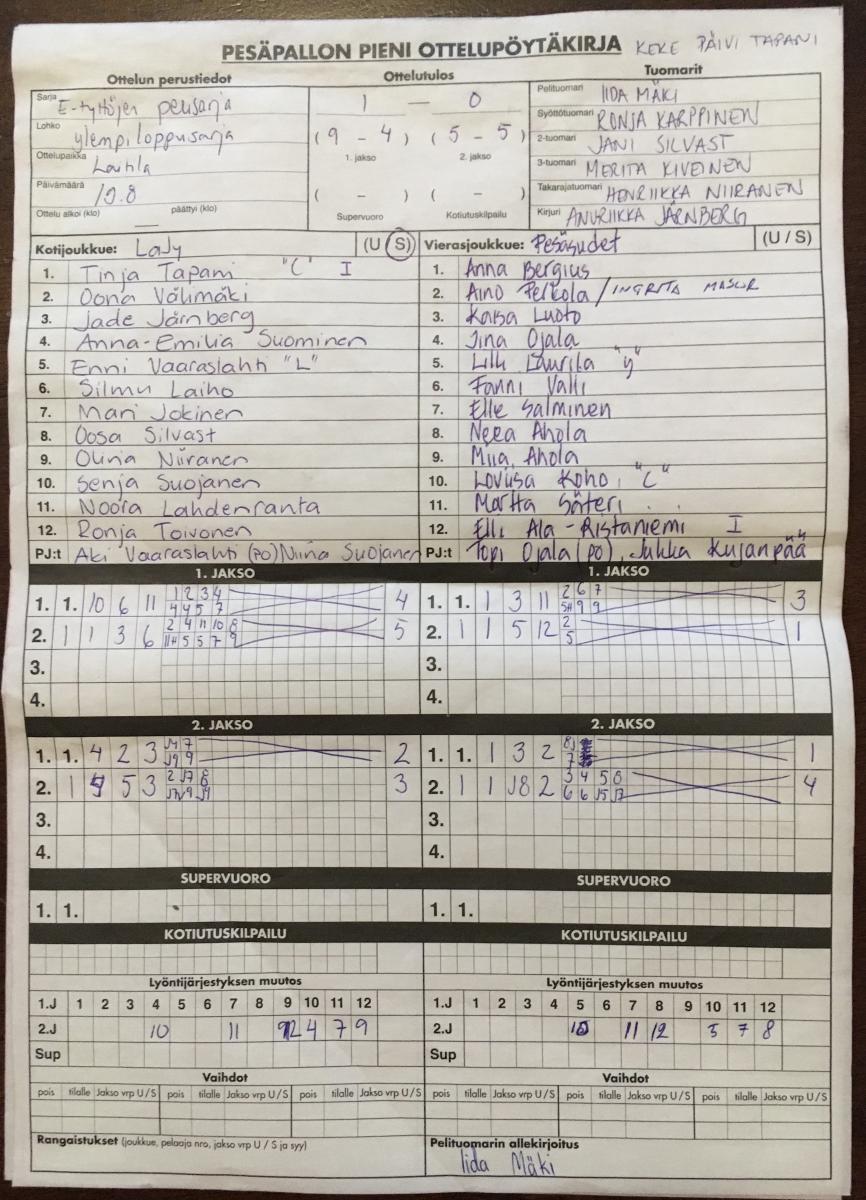 PESÄPALLON PIENI OTTELUPÖYTÄKIRJA KEKE PÄIVI TAPANI
Ottelun perustiedot
Sarja E-tyttöjen perussarja
Lohko ylempi loppusarja
Ottelupaikka Laitila
Päivämäärä 10.8
Ottelu alkoi (klo) — päättyi (klo)
Ottelutulos
1 — 0
( 9 - 4 ) ( 5 - 5 )
1. jakso 2. jakso
( - ) ( - )
Supervuoro Kotiutuskilpailu
Tuomarit
Pelituomari IIDA MÄKI
Syöttötuomari RONJA KARPPINEN
2-tuomari JANI SILVAST
3-tuomari MERITA KIVEINEN
Takarajatuomari HENRIIKKA NIIRANEN
Kirjuri ANURIIKKA JÄRNBERG
Kotijoukkue: LaJy (U (S))
1. Tinja Tapani "C" I
2. Oona Välimäki
3. Jade Järnberg
4. Anna-Emilia Suominen
5. Enni Vaaraslahti "L"
6. Silmu Laiho
7. Mari Jokinen
8. Oosa Silvast
9. Olivia Niiranen
10. Senja Suojanen
11. Noora Lahdenranta
12. Ronja Toivonen
PJ:t Aki Vaaraslahti (PO) Niina Suojanen
Vierasjoukkue: Pesäsudet (U / S)
1. Anna Bergius
2. Aino Perkola / INGRITA MASUR
3. Kaisa Luoto
4. Iina Ojala
5. Lilli Laurila "y"
6. Fanni Valli
7. Elle Salminen
8. Neea Ahola
9. Miia Ahola
10. Loviisa Koho "C"
11. Martta Säteri
12. Elli Ala-Ristaniemi I
PJ:t Topi Ojala (PO), Jukka Kujanpää
1. JAKSO
1. 1. 10 6 11 1 2 3 4 4
4 4 5 7
2. 1 1 3 6 2 4 11 10 8 5
11H 5 5 7 9
3.
4.
1. JAKSO
1. 1. 1 3 11 2 6 7 3
5H 9 9
2. 1 1 5 12 2 1
5
3.
4.
2. JAKSO
1. 1. 4 2 3 J4 7 2
J9 9
2. 1 5 3 2 J7 8 3
J7 9 J9
3.
4.
2. JAKSO
1. 1. 1 3 2 8J 1
7
2. 1 1 J8 2 3 4 5 8 4
6 6 J5 J7
3.
4.
SUPERVUORO
1. 1.
SUPERVUORO
1. 1.
KOTIUTUSKILPAILU
KOTIUTUSKILPAILU
Lyöntijärjestyksen muutos
1.J 1 2 3 4 5 6 7 8 9 10 11 12
2.J 10 11 12 4 7 9
Sup
Lyöntijärjestyksen muutos
1.J 1 2 3 4 5 6 7 8 9 10 11 12
2.J 10 11 12 5 7 8
Sup
Vaihdot
pois tilalle Jakso vrp U / S pois tilalle Jakso vrp U / S pois tilalle Jakso vrp U / S
Vaihdot
pois tilalle Jakso vrp U / S pois tilalle Jakso vrp U / S pois tilalle Jakso vrp U / S
Rangaistukset (joukkue, pelaaja nro, jakso vrp U / S ja syy)
Pelituomarin allekirjoitus
Iida Mäki